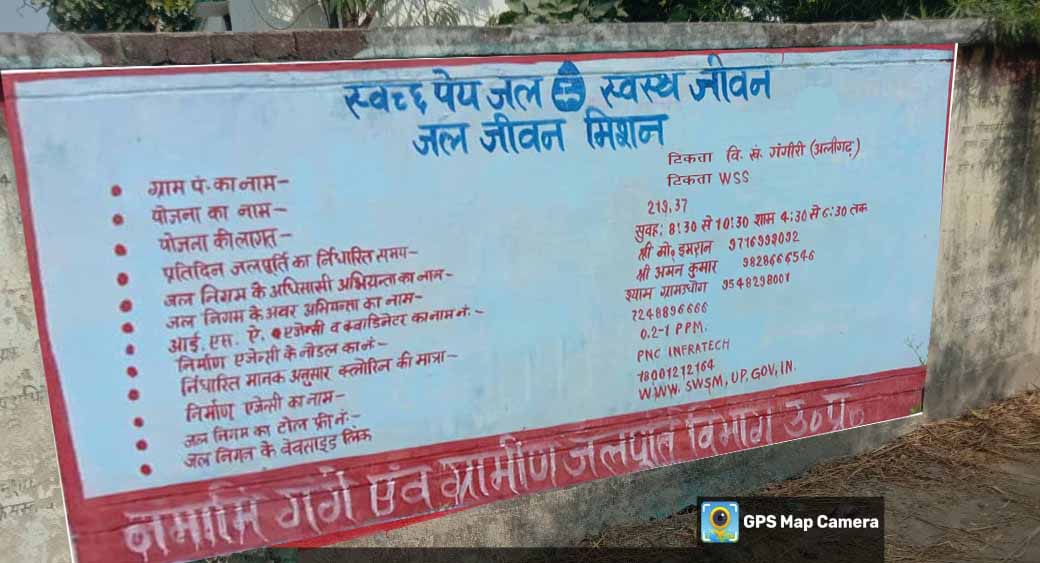 स्वच्छ पेय जल स्वस्थ जीवन
जल जीवन मिशन
ग्राम पं. का नाम- टिकता वि. खं. गंगीरी (अलीगढ़)
योजना का नाम- टिकता WSS
योजना की लागत- 213.37
प्रतिदिन जलपूर्ति का निर्धारित समय- सुवह: 8:30 से 10:30 शाम 4:30 से 6:30 तक
जल निगम के अधिसासी अभियन्ता का नाम- श्री मो॰ इमरान 9716999092
जल निगम के अवर अभियन्ता का नाम- श्री अमन कुमार 9828666546
आई. एस. ऐ. एजेन्सी व क्वाडिनेटर का नाम नं:- श्याम ग्रामउधोग 9548298001
निर्माण एजेन्सी के नोडल का नं- 7248896666
निधारित मानक अनुसार क्लोरिन की मात्रा- 0.2-1 PPM.
निर्माण एजेन्सी का नाम- PNC INFRATECH
जल निगम का टोल फ्री नं:- 18001212164
जल निगम के वेवसाइड लिंक WWW. SWSM, UP. GOV, IN.
नमामि गंगे एंव ग्रामीण जलपूर्ति विभाग उ॰ प्र॰
GPS Map Camera